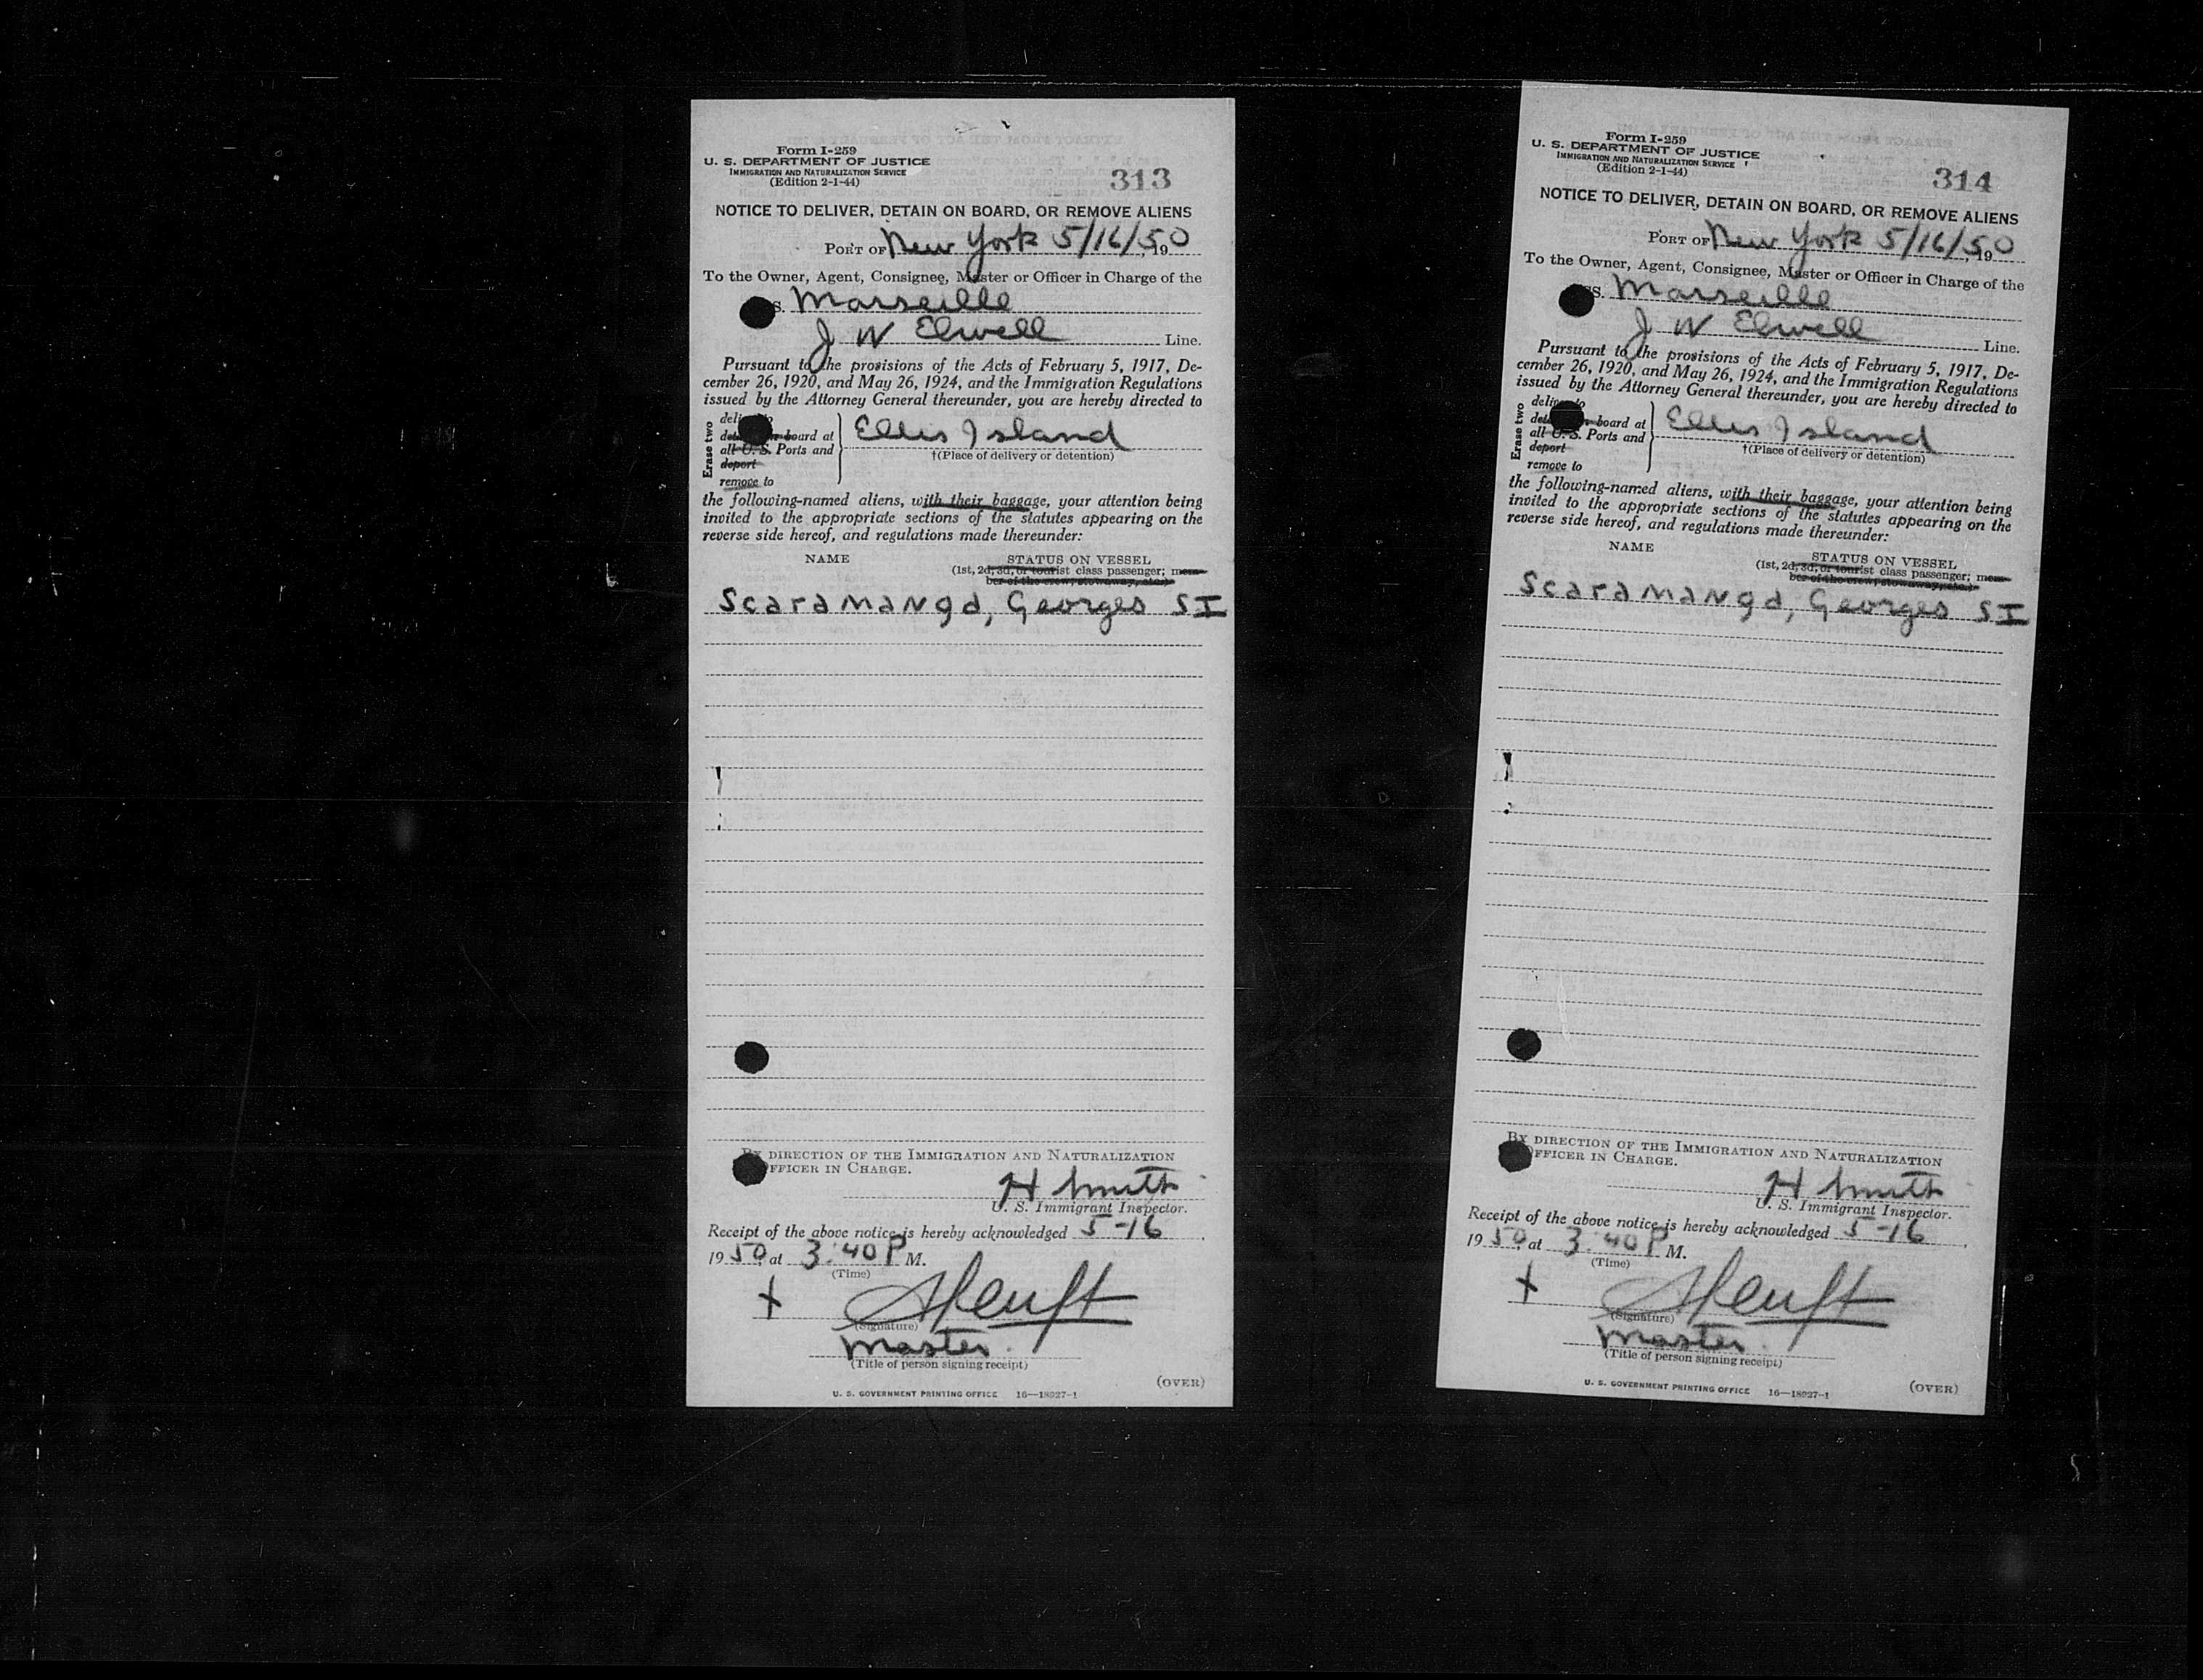 Form I-259
U. S. DEPARTMENT OF JUSTICE
IMMIGRATION AND NATURALIZATION SERVICE
(Edition 2-1-44)
313
NOTICE TO DELIVER, DETAIN ON BOARD, OR REMOVE ALIENS
PORT OF New York 5/16/50, 19
To the Owner, Agent, Consignee, Master or Officer in Charge of the
S. Marseille
J W Elwell Line.
Pursuant to the provisions of the Acts of February 5, 1917, De-
cember 26, 1920, and May 26, 1924, and the Immigration Regulations
issued by the Attorney General thereunder, you are hereby directed to
Erase two
to
board at
all U. S. Ports and
deport
remove to
Ellis Island
†(Place of delivery or detention)
the following-named aliens, with their baggage, your attention being
invited to the appropriate sections of the statutes appearing on the
reverse side hereof, and regulations made thereunder:
NAME
STATUS ON VESSEL
(1st, 2d, 3d, or tourist class passenger; mem-
ber of the crew, stowaway, etc.)
Scaramanga, Georges SI
BY DIRECTION OF THE IMMIGRATION AND NATURALIZATION
OFFICER IN CHARGE.
H Smith
U. S. Immigrant Inspector.
Receipt of the above notice is hereby acknowledged 5-16,
1950, at 3:40 P M.
(Time)
X
(Signature)
Master
(Title of person signing receipt)
(OVER)
U. S. GOVERNMENT PRINTING OFFICE 16—18027-1
Form I-259
U. S. DEPARTMENT OF JUSTICE
IMMIGRATION AND NATURALIZATION SERVICE
(Edition 2-1-44)
314
NOTICE TO DELIVER, DETAIN ON BOARD, OR REMOVE ALIENS
PORT OF New York 5/16/50, 19
To the Owner, Agent, Consignee, Master or Officer in Charge of the
SS. Marseille
J W Elwell Line.
Pursuant to the provisions of the Acts of February 5, 1917, De-
cember 26, 1920, and May 26, 1924, and the Immigration Regulations
issued by the Attorney General thereunder, you are hereby directed to
Erase two
to
board at
all U. S. Ports and
deport
remove to
Ellis Island
†(Place of delivery or detention)
the following-named aliens, with their baggage, your attention being
invited to the appropriate sections of the statutes appearing on the
reverse side hereof, and regulations made thereunder:
NAME
STATUS ON VESSEL
(1st, 2d, 3d, or tourist class passenger; mem-
ber of the crew, stowaway, etc.)
Scaramanga, Georges SI
BY DIRECTION OF THE IMMIGRATION AND NATURALIZATION
OFFICER IN CHARGE.
H Smith
U. S. Immigrant Inspector.
Receipt of the above notice is hereby acknowledged 5-16,
1950, at 3:40 P M.
(Time)
X
(Signature)
Master
(Title of person signing receipt)
U. S. GOVERNMENT PRINTING OFFICE 16—18027-1
(OVER)